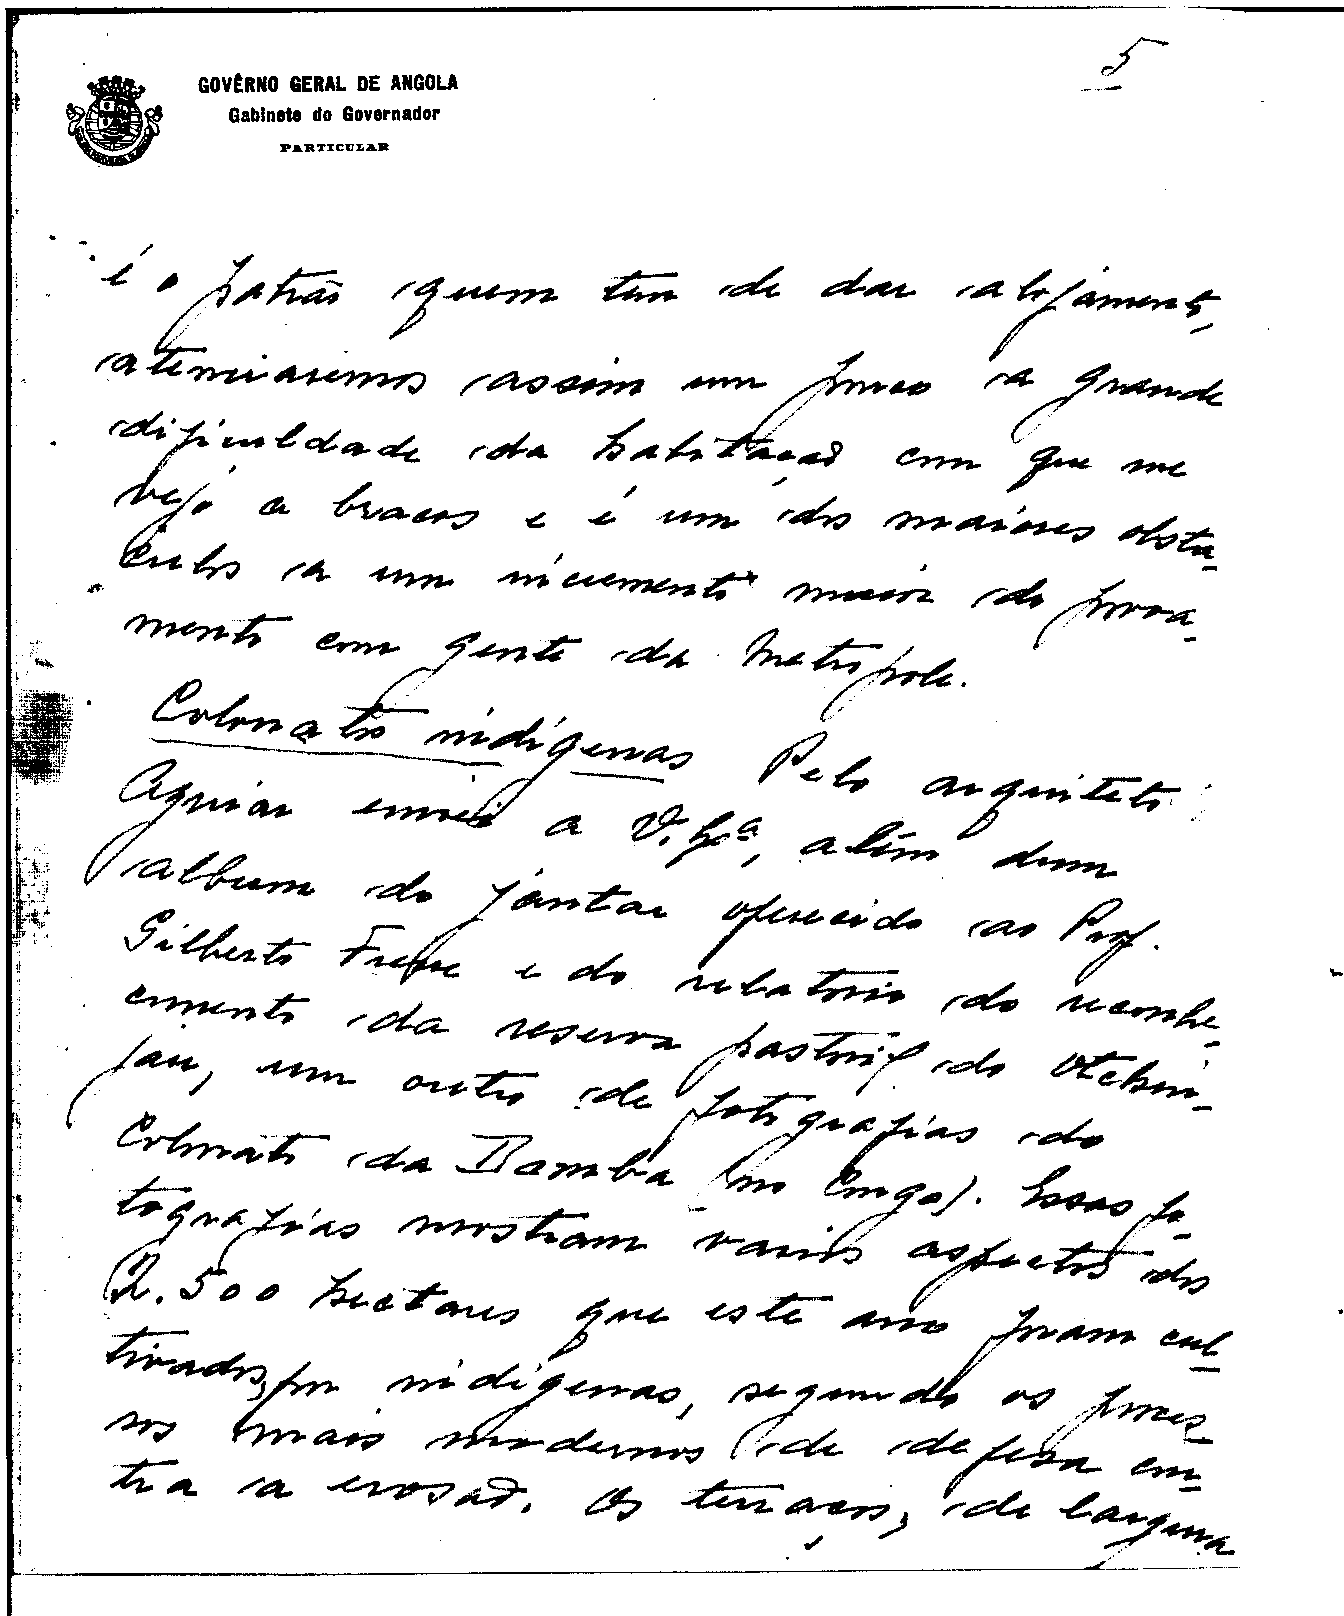 5
GOVÊRNO GERAL DE ANGOLA
Gabinete do Governador
PARTICULAR
é o patrão quem tem de dar alojamento,
atenuaremos assim um pouco a grande
dificuldade da habitação com que me
vejo a braços e é um dos maiores obstá-
culos a um incremento maior do povoa-
mento com gente da Metropole.
Colonatos indígenas Pelo arquiteto
Aguiar enviei a V. Exª, além dum
album do jantar oferecido ao Prof.
Gilberto Freyre e do relatorio do reconhe-
cimento da reserva pastoril do Otchin-
jau, um outro de fotografias do
Colonato da Damba (no Congo). Essas fo-
tografias mostram varios aspectos dos
2.500 hectares que este ano foram cul-
tivados, por indígenas, segundo os proces-
sos mais modernos de defesa con-
tra a erosão. Os terraços, de largura